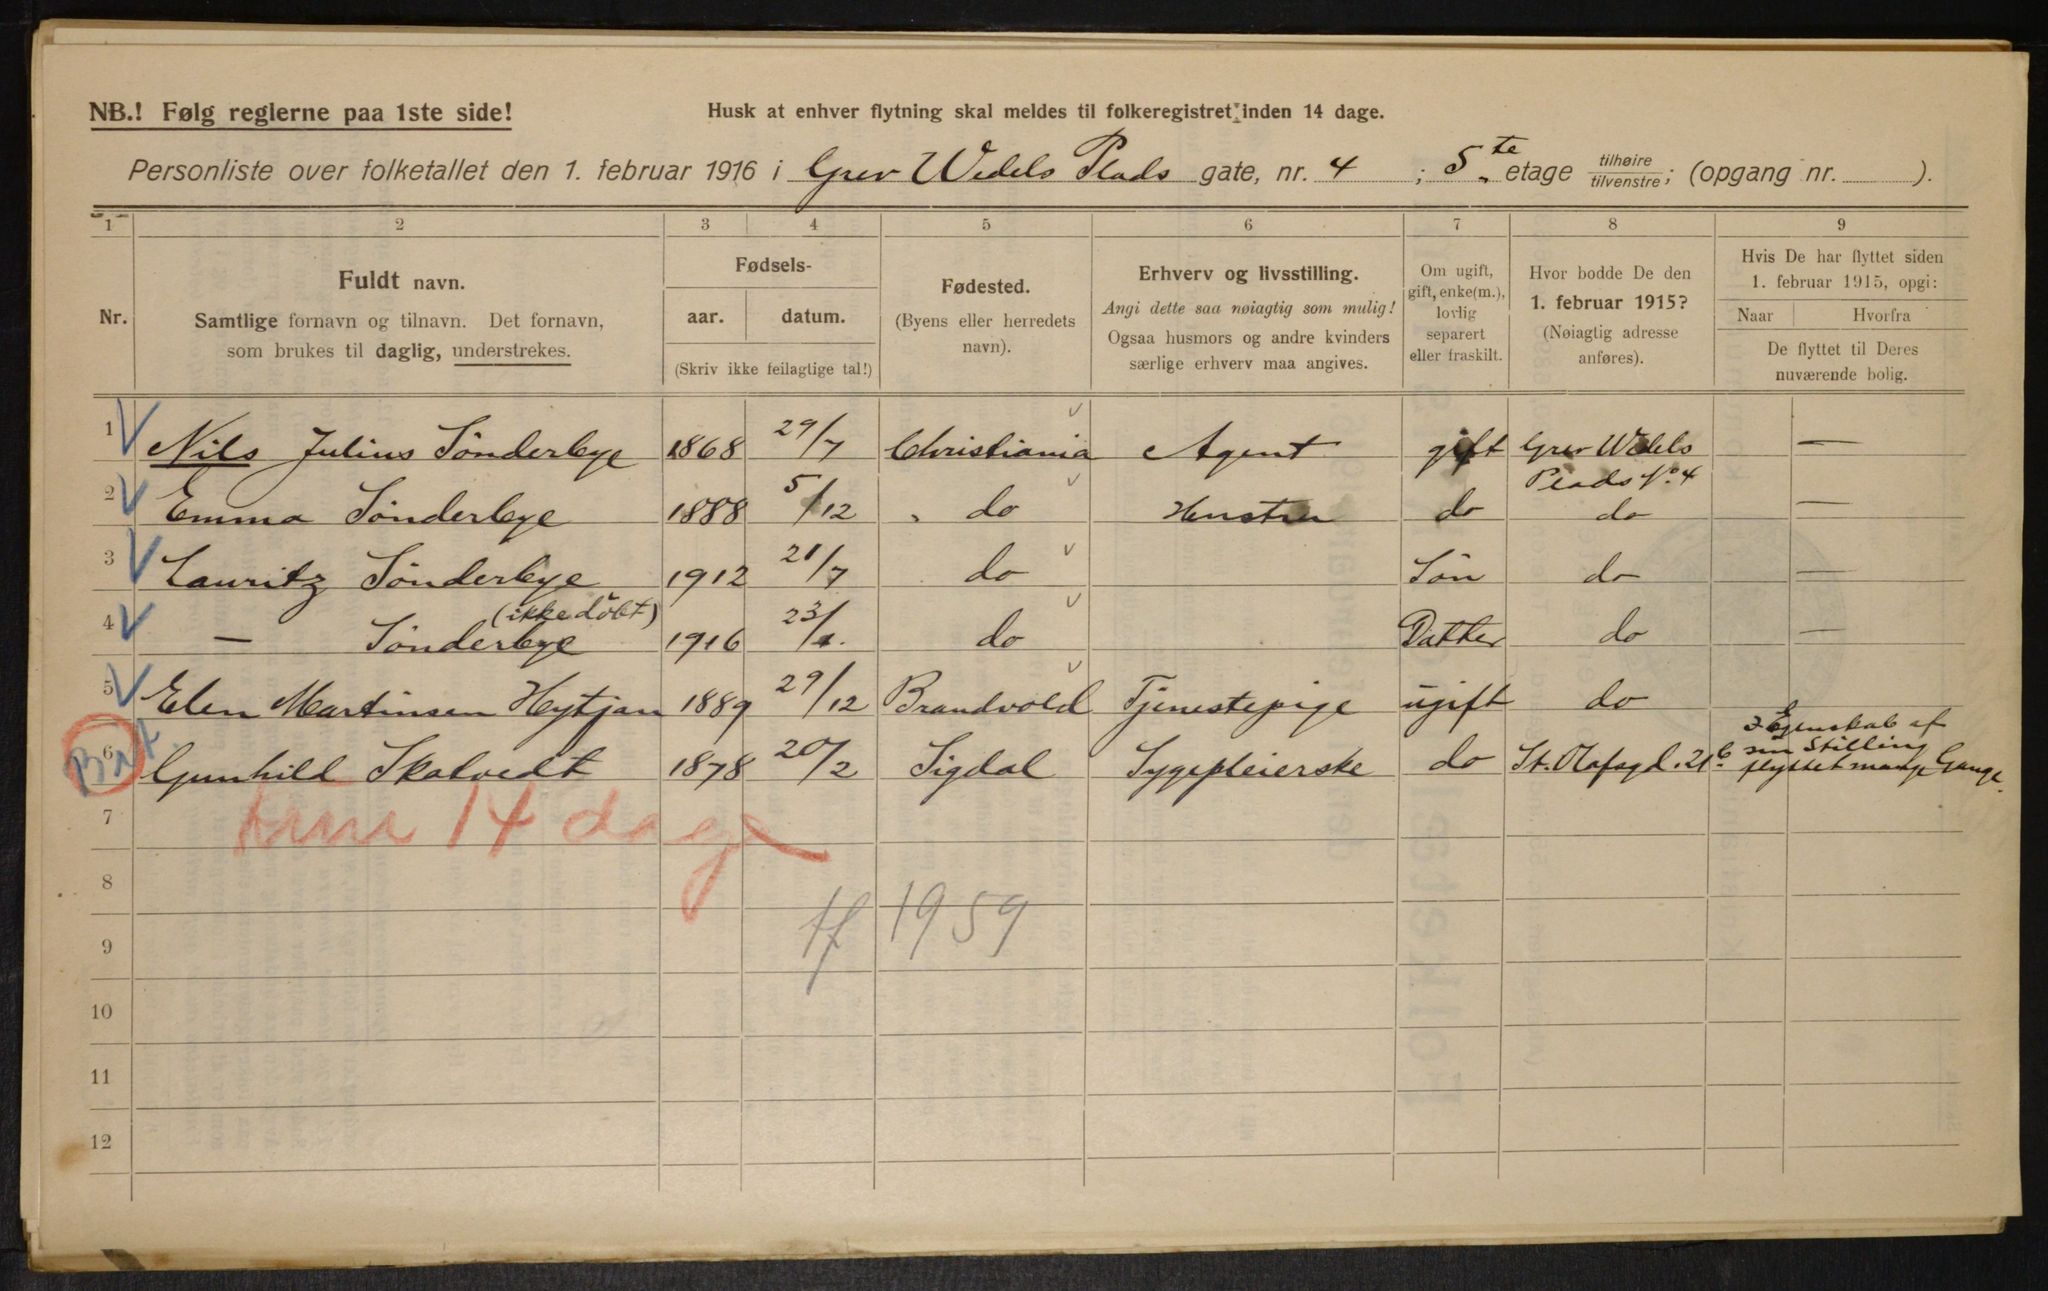 NB.! Følg reglerne paa 1ste side!
Husk at enhver flytning skal meldes til folkeregistret inden 14 dage.
Personliste over folketallet den 1. februar 1916 i Grev Wedels Plads gate, nr. 4 ; 5te etage tilhøire/tilvenstre; (opgang nr. ).
1 2 3 4 5 6 7 8 9
Nr.
Fuldt navn.
Samtlige fornavn og tilnavn. Det fornavn,
som brukes til daglig, understrekes.
Fødsels-
aar. datum.
(Skriv ikke feilagtige tal!)
Fødested.
(Byens eller herredets
navn).
Erhverv og livsstilling.
Angi dette saa nøiagtig som mulig!
Ogsaa husmors og andre kvinders
særlige erhverv maa angives.
Om ugift,
gift, enke(m.),
lovlig
separert
eller fraskilt.
Hvor bodde De den
1. februar 1915?
(Nøiagtig adresse
anføres).
Hvis De har flyttet siden
1. februar 1915, opgi:
Naar Hvorfra
De flyttet til Deres
nuværende bolig.
1 Nils Julius Sönderbye 1868 29/7 Christiania Agent gift Grev Wedels Plads No. 4 —
2 Emma Sönderbye 1888 5/12 do Hustru do do —
3 Lauritz Sönderbye 1912 21/7 do Sön do —
4 — Sönderbye (ikke döbt) 1916 23/1. do Datter do —
5 Elen Martinsen Hytjan 1889 29/12 Brandvold Tjenestepige ugift do
6 Gunhild Skatvedt 1878 20/2 Sigdal Sygepleierske do St. Olafsgd. 21b I Egenskab af sin Stilling flyttet mange Gange.
7
14 dage
8
9
1959
10
11
12